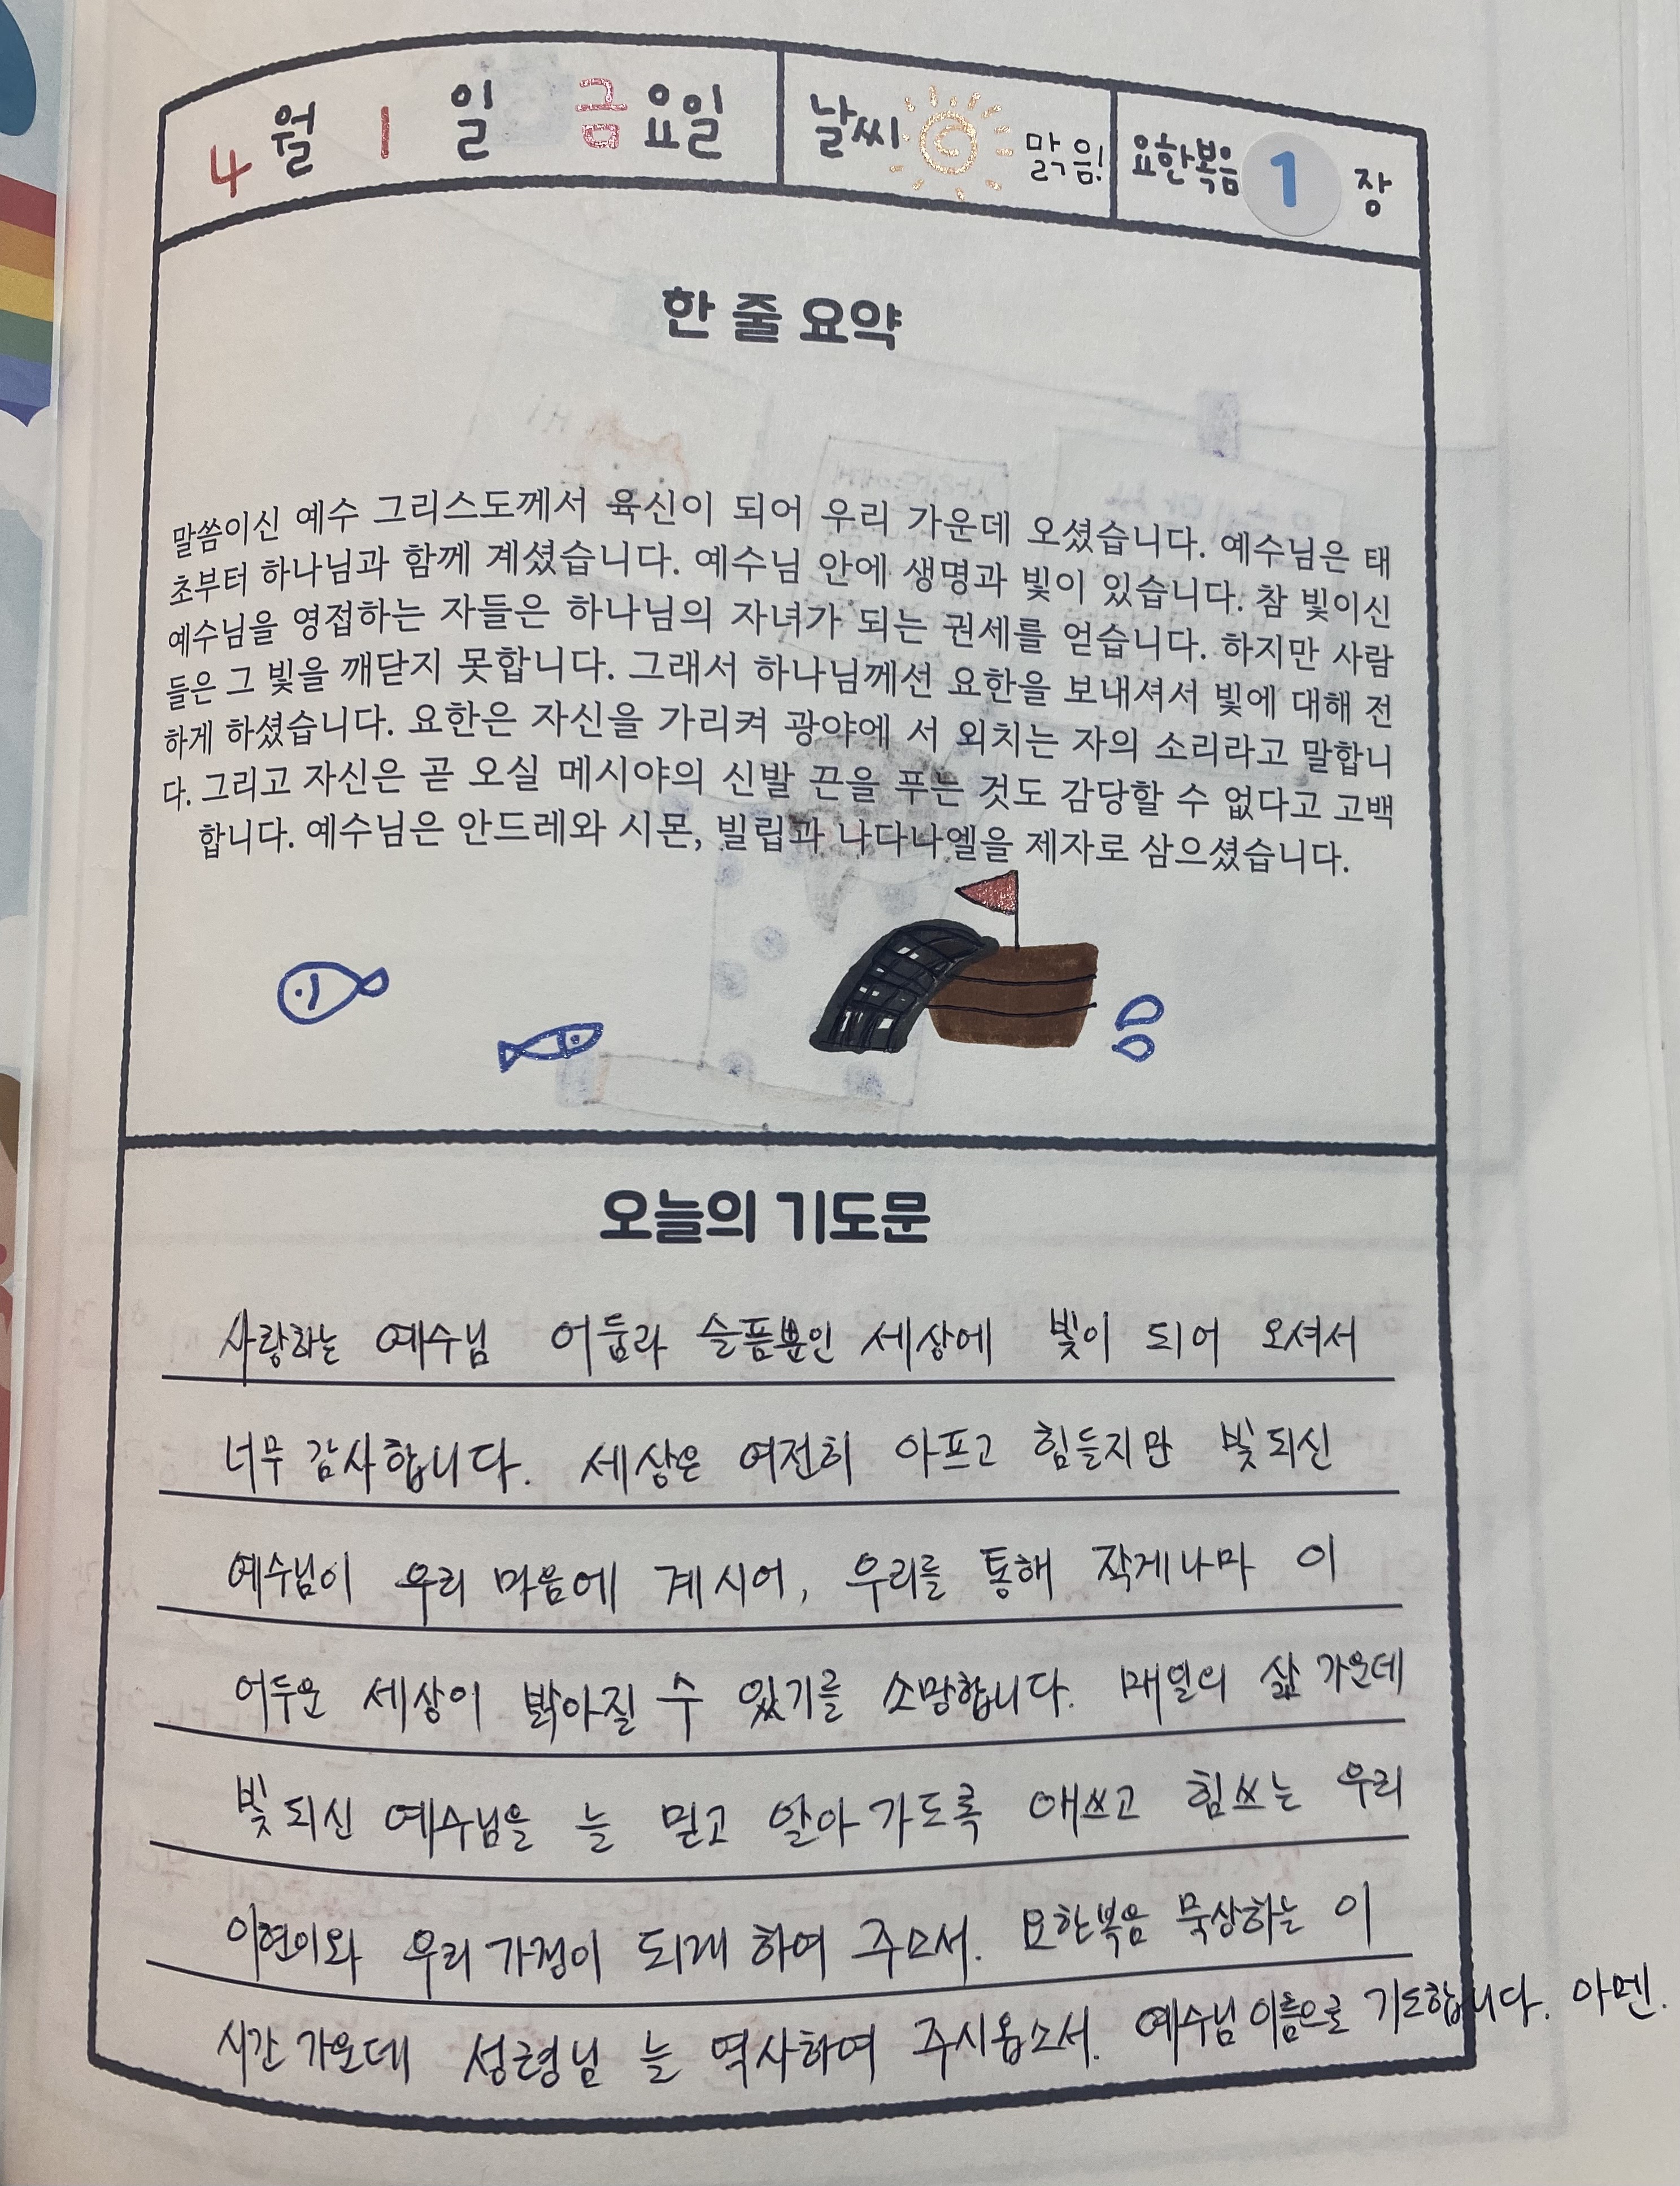 4월 1일 금요일 날씨 맑음! 요한복음 1 장
한 줄 요약
말씀이신 예수 그리스도께서 육신이 되어 우리 가운데 오셨습니다. 예수님은 태
초부터 하나님과 함께 계셨습니다. 예수님 안에 생명과 빛이 있습니다. 참 빛이신
예수님을 영접하는 자들은 하나님의 자녀가 되는 권세를 얻습니다. 하지만 사람
들은 그 빛을 깨닫지 못합니다. 그래서 하나님께선 요한을 보내셔서 빛에 대해 전
하게 하셨습니다. 요한은 자신을 가리켜 광야에 서 외치는 자의 소리라고 말합니
다. 그리고 자신은 곧 오실 메시야의 신발 끈을 푸는 것도 감당할 수 없다고 고백
합니다. 예수님은 안드레와 시몬, 빌립과 나다나엘을 제자로 삼으셨습니다.
오늘의 기도문
사랑하는 예수님 어둠과 슬픔뿐인 세상에 빛이 되어 오셔서
너무 감사합니다. 세상은 여전히 아프고 힘들지만 빛 되신
예수님이 우리 마음에 계시어, 우리를 통해 작게나마 이
어두운 세상이 밝아질 수 있기를 소망합니다. 매일의 삶 가운데
빛 되신 예수님을 늘 믿고 알아 가도록 애쓰고 힘쓰는 우리
이현이와 우리 가정이 되게 하여 주소서. 요한복음 묵상하는 이
시간 가운데 성령님 늘 역사하여 주시옵소서. 예수님 이름으로 기도합니다. 아멘.